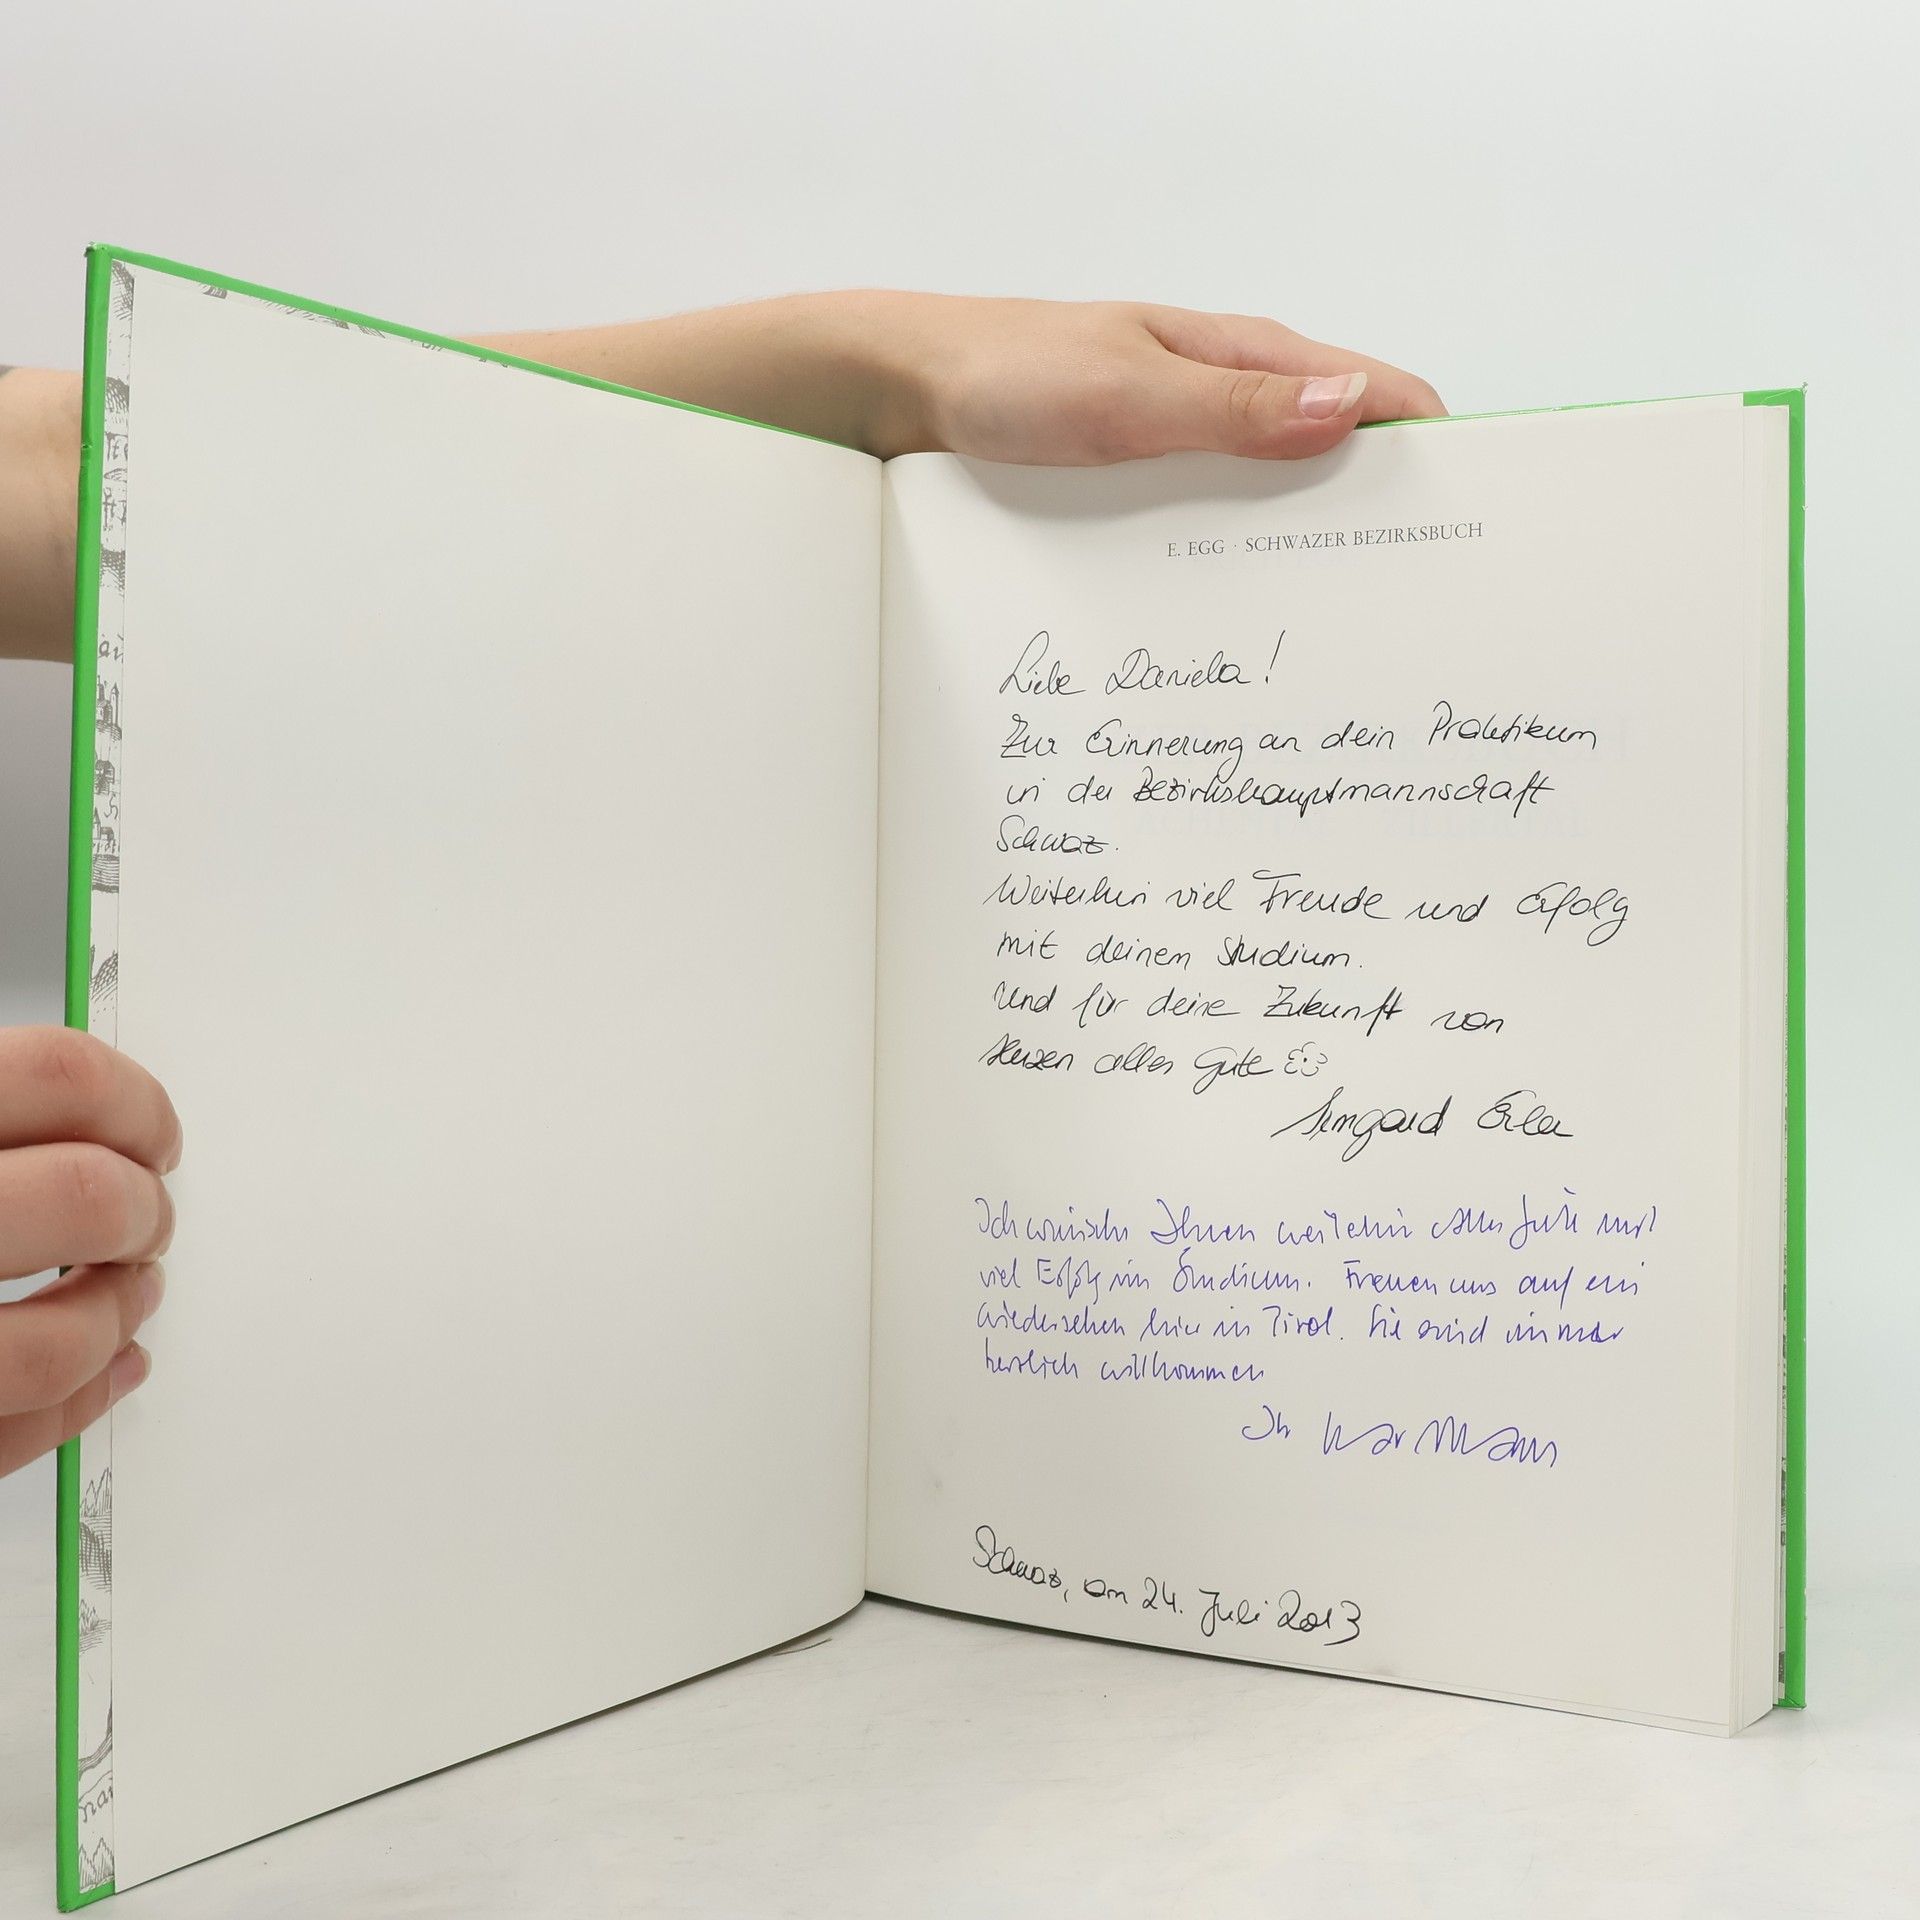 E. EGG · SCHWAZER BEZIRKSBUCH
Liebe Daniela!
Zur Erinnerung an dein Praktikum
in der Bezirkshauptmannschaft
Schwaz.
Weiterhin viel Freude und Erfolg
mit deinem Studium.
Und für deine Zukunft von
Herzen alles Gute
Irmgard Erler
Ich wünsche Ihnen weiterhin alles Gute und
viel Erfolg im Studium. Freuen uns auf ein
Wiedersehen hier in Tirol. Sie sind immer
herzlich willkommen
Ihr
Schwaz, am 24. Juli 2013